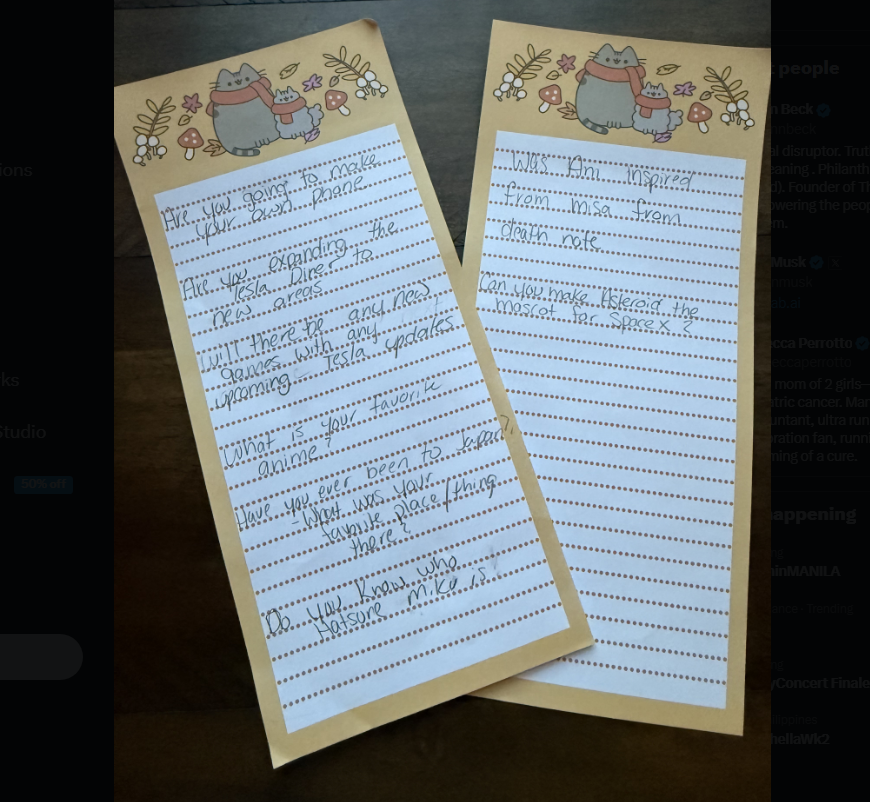 Are you going to make
your own phone
Are you expanding the
Tesla Diner to
new areas
will there be any new
games with any
upcoming Tesla updates
What is your favorite
anime?
Have you ever been to Japan?,
- What was your
favorite place/thing
there?
Do you know who
Hatsune Miku is?
Was Ani inspired
from misa from
death note
Can you make Asteroid the
mascot for SpaceX?
ions
ks
Studio
50% off
people
n Beck
nbeck
al disruptor. Trut
eaning . Philanth
d). Founder of Th
owering the peop
m.
Musk
nmusk
ab.ai
cca Perrotto
eccaperrotto
mom of 2 girls—
tric cancer. Mar
untant, ultra run
ration fan, runn
ming of a cure.
appening
inMANILA
Trending
yConcert Finale
hellaWk2